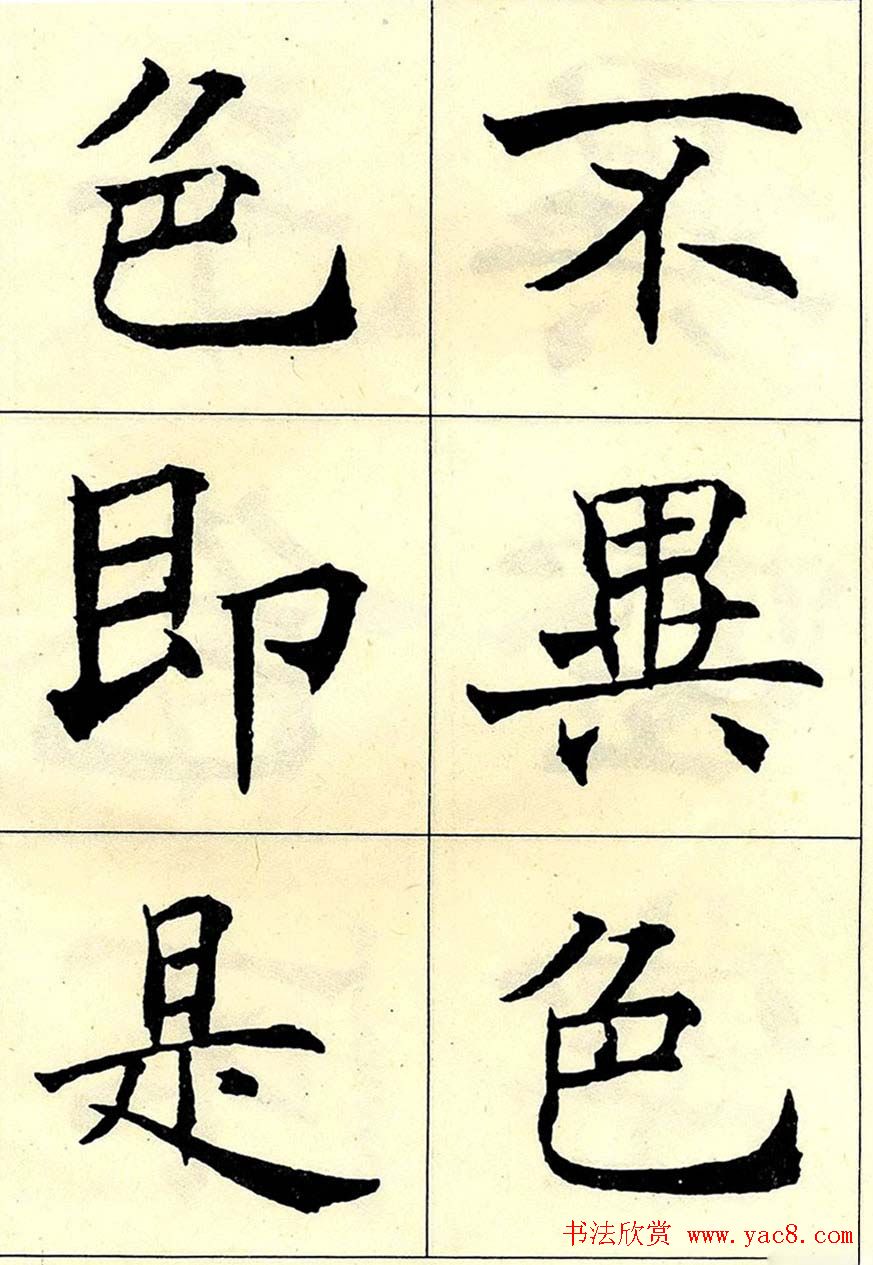 不異色
色即是
书法欣赏 www.yac8.com